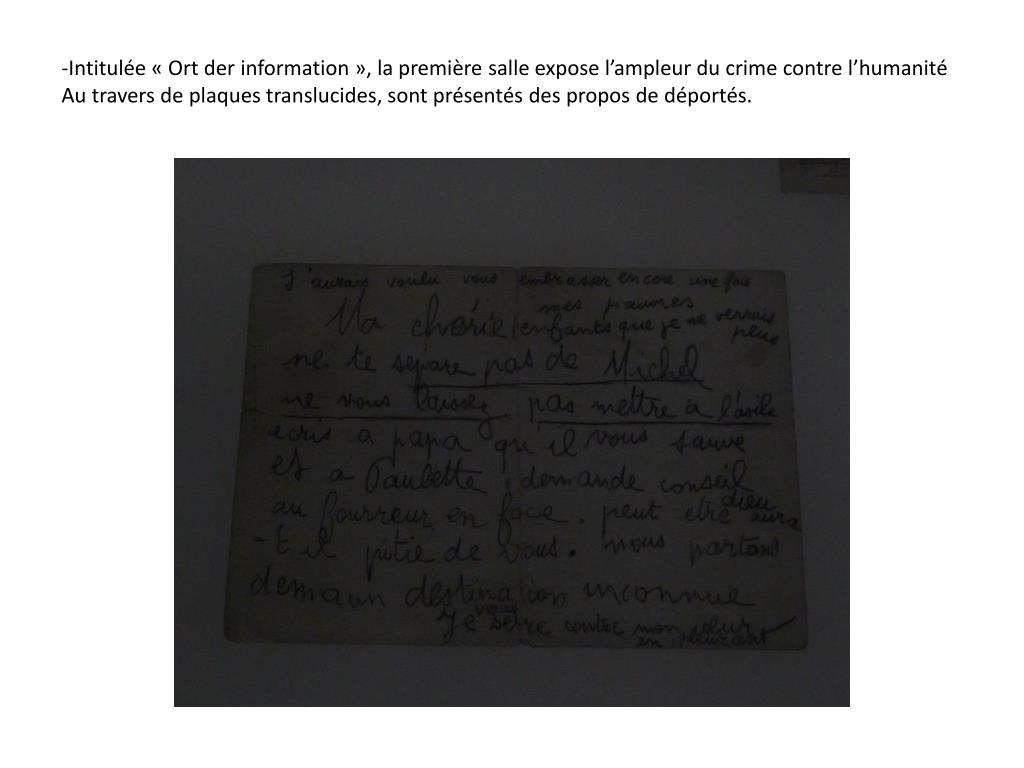 -Intitulée « Ort der information », la première salle expose l’ampleur du crime contre l’humanité
Au travers de plaques translucides, sont présentés des propos de déportés.
J'aurais voulu vous embrasser encore une fois
mes pauvres
Ma chérie enfants que je ne verrais
plus
ne te separe pas de Michel
ne vous laissez pas mettre a l'asile
ecris a papa qu'il vous sauve
et a Paulette demande conseil
au fourreur en face. peut etre dieu aura
-t il pitie de vous. nous partons
demain destination inconnue
Je vous serre contre mon cœur
en pleurant